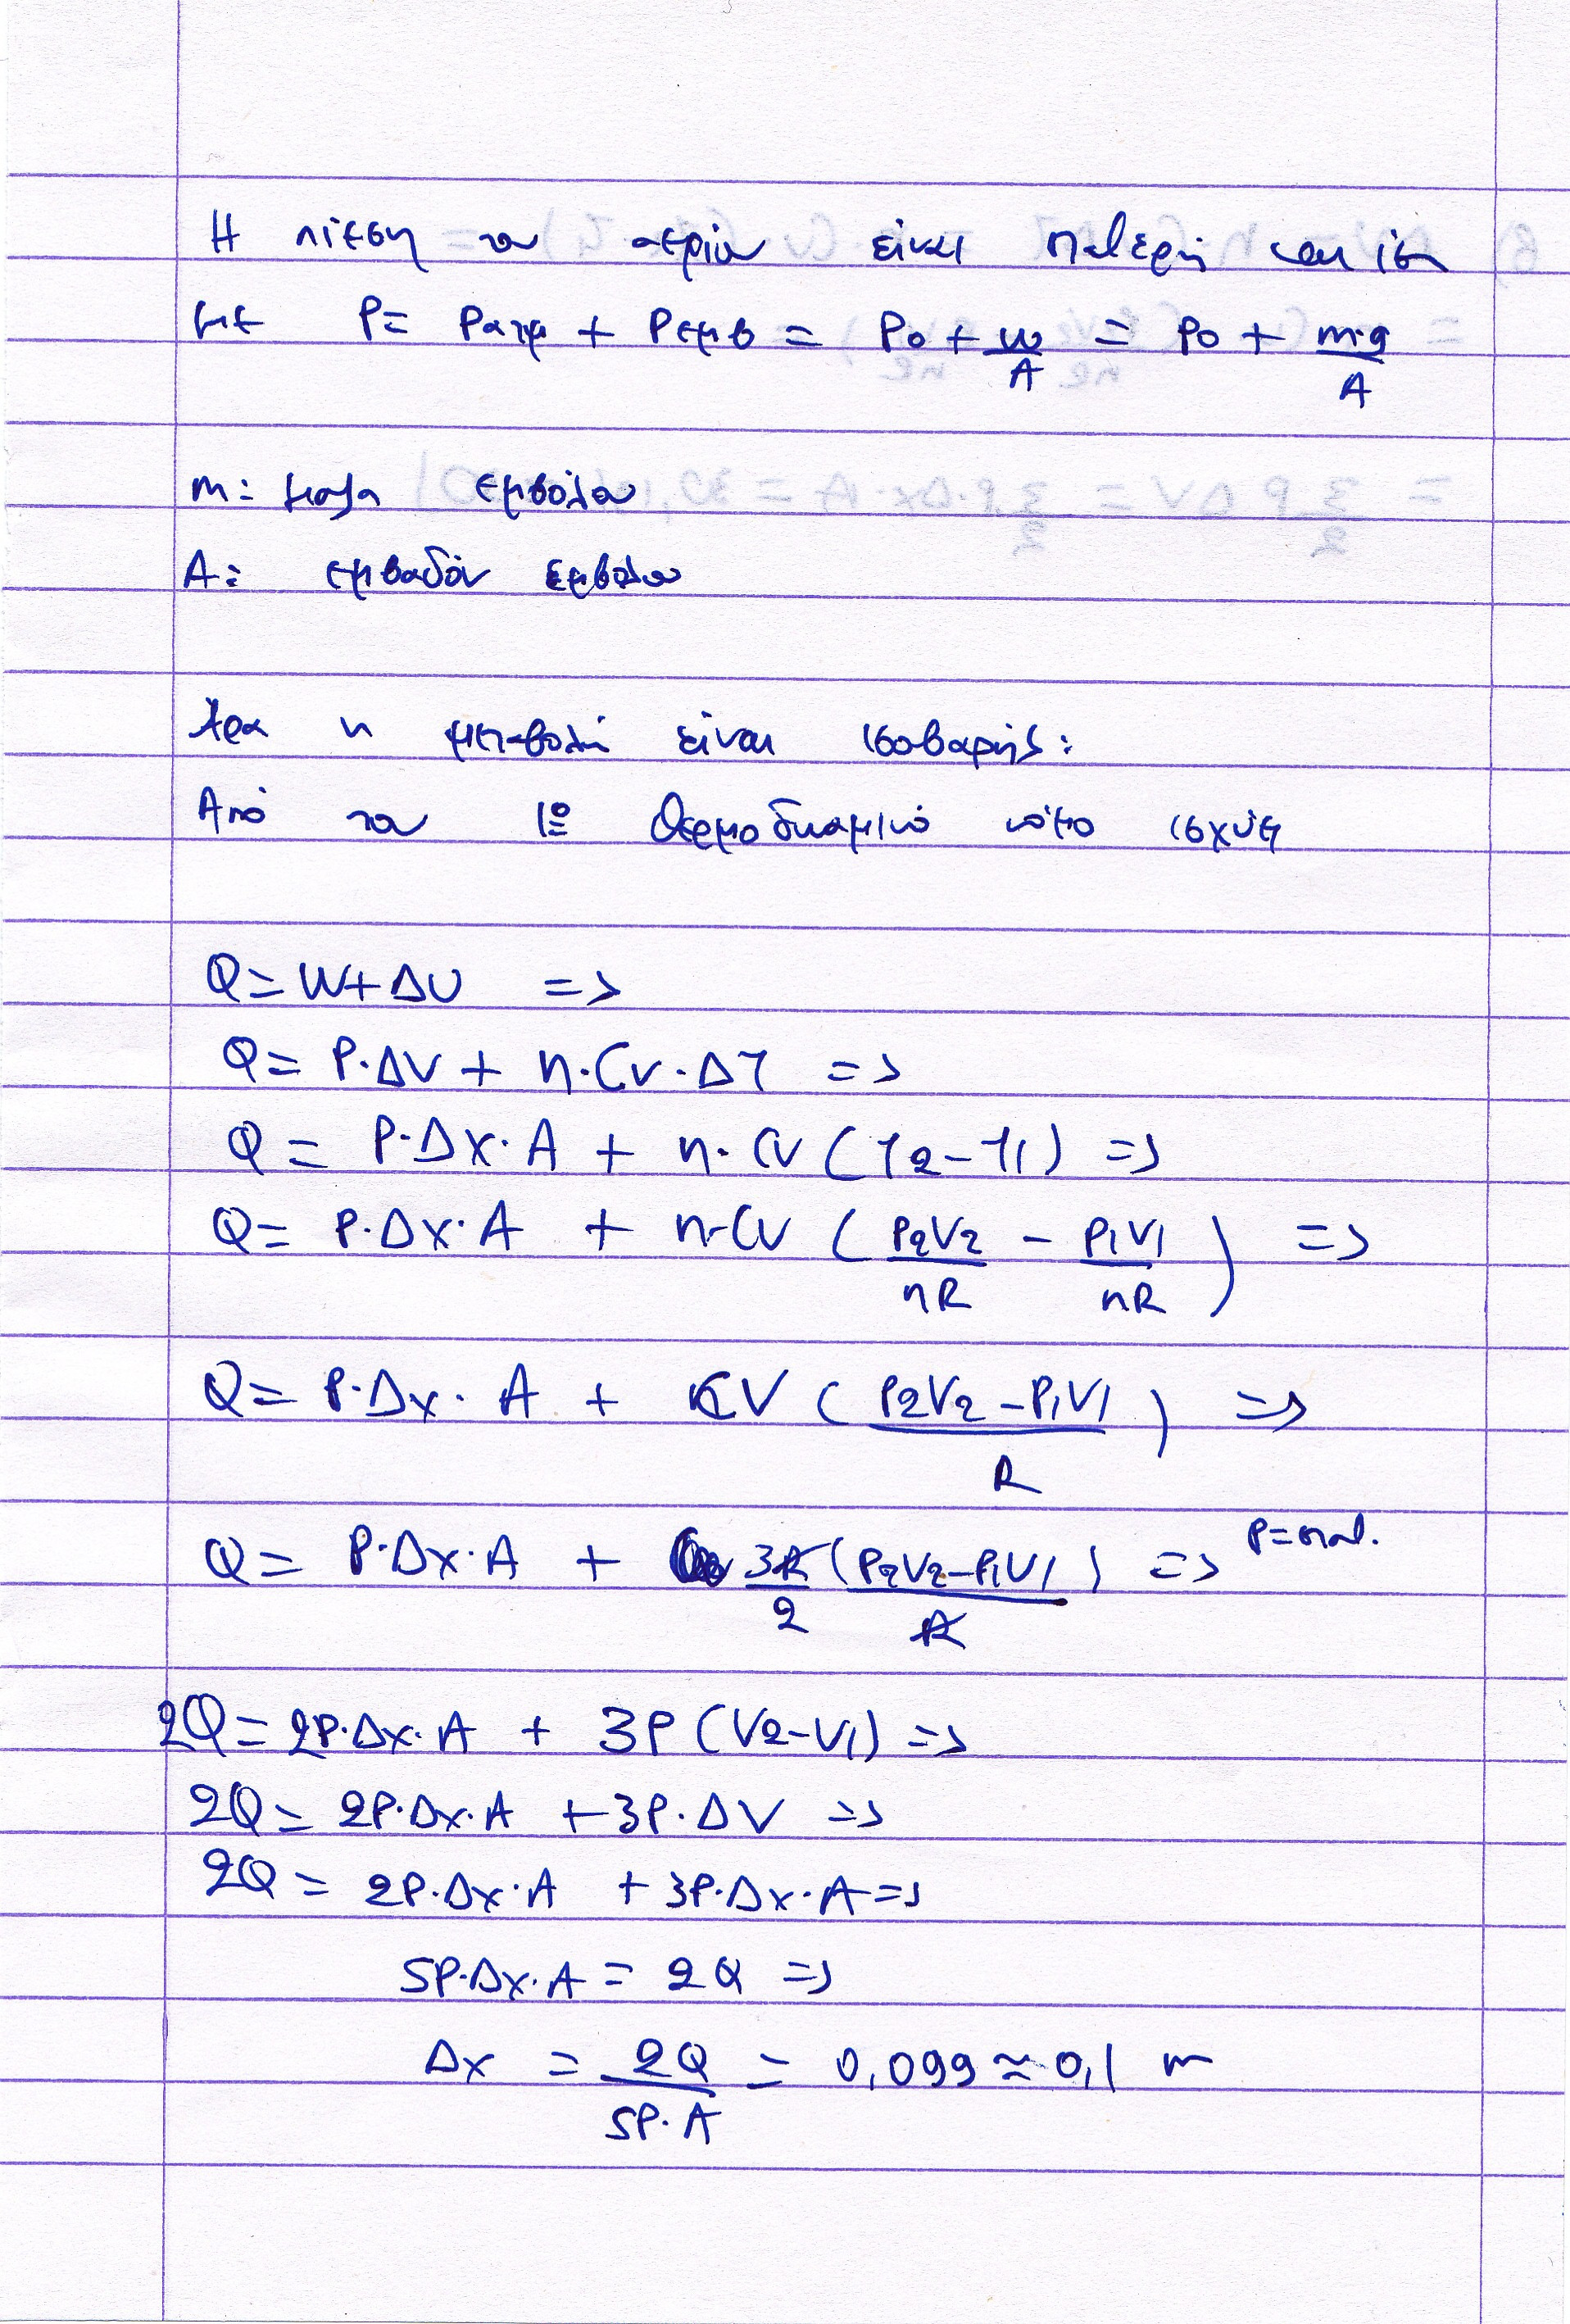 Η πίεση του αερίου είναι σταθερή και ίση
με P = Pατμ + Pεμβ = P0 + w/A = P0 + m·g/A
m: μαζα εμβόλου
A: εμβαδόν εμβόλου
Άρα η μεταβολή είναι ισοβαρής:
Από τον 1º θερμοδυναμικό νόμο ισχύει
Q = W + ΔU =>
Q = P·ΔV + n·Cv·ΔT =>
Q = P·Δx·A + n·Cv (T2 - T1) =>
Q = P·Δx·A + n·Cv (P2V2/nR - P1V1/nR) =>
Q = P·Δx·A + CV (P2V2 - P1V1 / R) =>
Q = P·Δx·A + 3R/2 (P2V2 - P1V1 / R) => P=σταθ.
2Q = 2P·Δx·A + 3P (V2 - V1) =>
2Q = 2P·Δx·A + 3P·ΔV =>
2Q = 2P·Δx·A + 3P·Δx·A =>
5P·Δx·A = 2Q =>
Δx = 2Q/5P·A = 0,099 ≈ 0,1 m